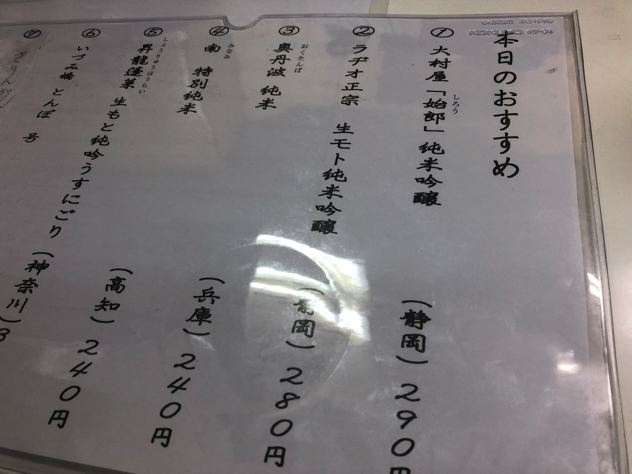 本日のおすすめ
① 大村屋「始郎」純米吟醸 (静岡) 290円
しろう
② ラヂオ正宗 生モト純米吟醸 (静岡) 280円
③ 奥丹波 純米 (兵庫) 240円
おくたんば
④ 南 特別純米 (高知) 240円
みなみ
⑤ 昇龍蓬莱 生もと純吟うすにごり (神奈川) 3
しょうりゅうほうらい
⑥ いづみ橋 とんぼ 号
⑦